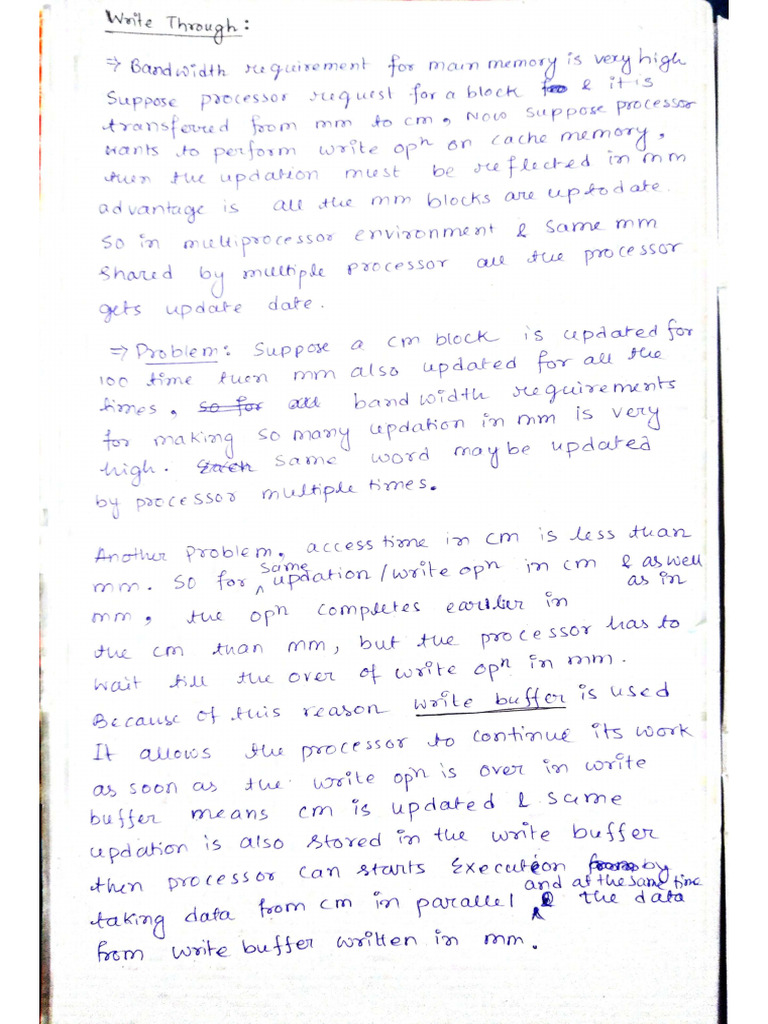 Write Through:
⇒ Bandwidth requirement for main memory is very high
Suppose processor request for a block & it is
transferred from mm to cm, Now suppose processor
wants to perform write opⁿ on cache memory,
then the updation must be reflected in mm
advantage is all the mm blocks are uptodate.
So in multiprocessor environment & same mm
shared by multiple processor all the processor
gets update date.
⇒ Problem: Suppose a cm block is updated for
100 time then mm also updated for all the
times, so for all bandwidth requirements
for making so many updation in mm is very
high. Each same word may be updated
by processor multiple times.
Another problem, access time in cm is less than
mm. So for same updation/write opⁿ in cm & as well
as in
mm, the opⁿ completes earlier in
the cm than mm, but the processor has to
wait till the over of write opⁿ in mm.
Because of this reason write buffer is used
It allows the processor to continue its work
as soon as the write opⁿ is over in write
buffer means cm is updated & same
updation is also stored in the write buffer
then processor can starts execution from by
taking data from cm in parallel & and at the same time the data
from write buffer written in mm.